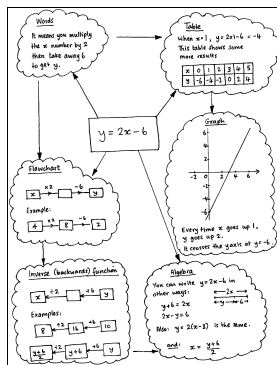 Words
It means you multiply
the x number by 2
then take away 6
to get y.
Table
When x=1, y=2×1-6=-4
This table shows some
more results
x 0 1 2 3 4 5
y -6 -4 -2 0 2 4
y = 2x - 6
Graph
y
6
4
2
2 4 6 x
-2
-4
-6
Every time x goes up 1,
y goes up 2.
It crosses the y axis at y=-6
Flowchart
x ×2 -6 y
Example:
4 ×2 8 -6 2
Inverse (backwards) function
x ÷2 +6 y
Examples:
8 ÷2 16 +6 10
y+6/2 ÷2 y+6 +6 y
Algebra
You can write y=2x-6 in
other ways:
y+6=2x
2x-y=6
2x
y 6
Also: y=2(x-3) is the same.
and: x = y+6/2